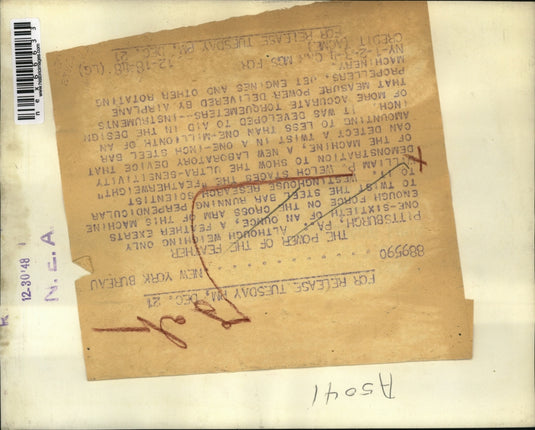 FOR RELEASE TUESDAY PM, DEC. 21
889590 . . . . . . . . . . . . NEW YORK BUREAU
THE POWER OF THE FEATHER
PITTSBURGH, PA. ALTHOUGH WEIGHING ONLY
ONE-SIXTIETH OF AN OUNCE, A FEATHER EXERTS
ENOUGH FORCE ON THE CROSS ARM OF THIS MACHINE
TO TWIST THE STEEL BAR RUNNING PERPENDICULAR
TO IT. WESTINGHOUSE RESEARCH SCIENTIST
WILLIAM P. WELCH STAGES THE "FEATHERWEIGHT"
DEMONSTRATION TO SHOW THE ULTRA-SENSITIVITY
OF THE MACHINE, A NEW LABORATORY DEVICE THAT
CAN DETECT A TWIST IN A ONE-INCH STEEL BAR
AMOUNTING TO LESS THAN ONE-MILLIONTH OF AN
INCH. IT WAS DEVELOPED TO AID IN THE DESIGN
OF MORE ACCURATE TORQUEMETERS--INSTRUMENTS
THAT MEASURE POWER DELIVERED BY AIRPLANE
PROPELLERS, JET ENGINES AND OTHER ROTATING
MACHINERY.
NY-1-2-3-4 C.A. MGS FGR
CREDIT (ACME) 12-18-48 (LG)
FOR RELEASE TUESDAY PM, DEC. 21
N.E.A.
12-30-48
A5041